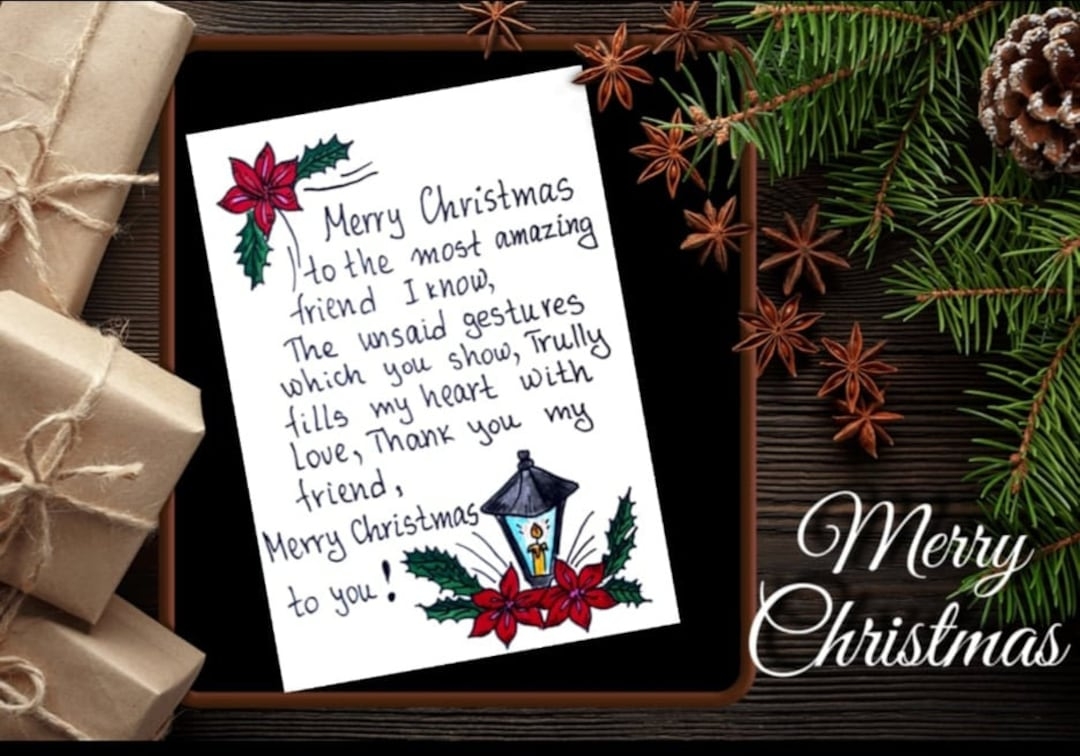 Merry Christmas
to the most amazing
friend I know,
The unsaid gestures
which you show, Trully
fills my heart with
love, Thank you my
friend,
Merry Christmas
to you!
Merry
Christmas